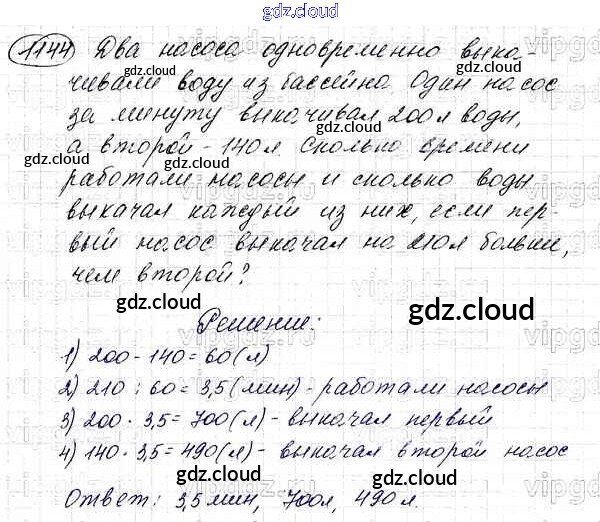 gdz.cloud
1144 Два насоса одновременно выка-
чивали воду из бассейна. Один насос
за минуту выкачивал 200л воды,
а второй - 140 л. Сколько времени
работали насосы и сколько воды
выкачал каждый из них, если пер-
вый насос выкачал на 210л больше,
чем второй?
Решение:
1) 200 - 140 = 60 (л)
2) 210 : 60 = 3,5 (мин) - работали насосы
3) 200 · 3,5 = 700 (л) - выкачал первый
4) 140 · 3,5 = 490 (л) - выкачал второй насос
Ответ: 3,5 мин, 700л, 490 л.
gdz.cloud
gdz.cloud
gdz.cloud
gdz.cloud
gdz.cloud
gdz.cloud
gdz.cloud
gdz.cloud
gdz.cloud
gdz.cloud
gdz.cloud